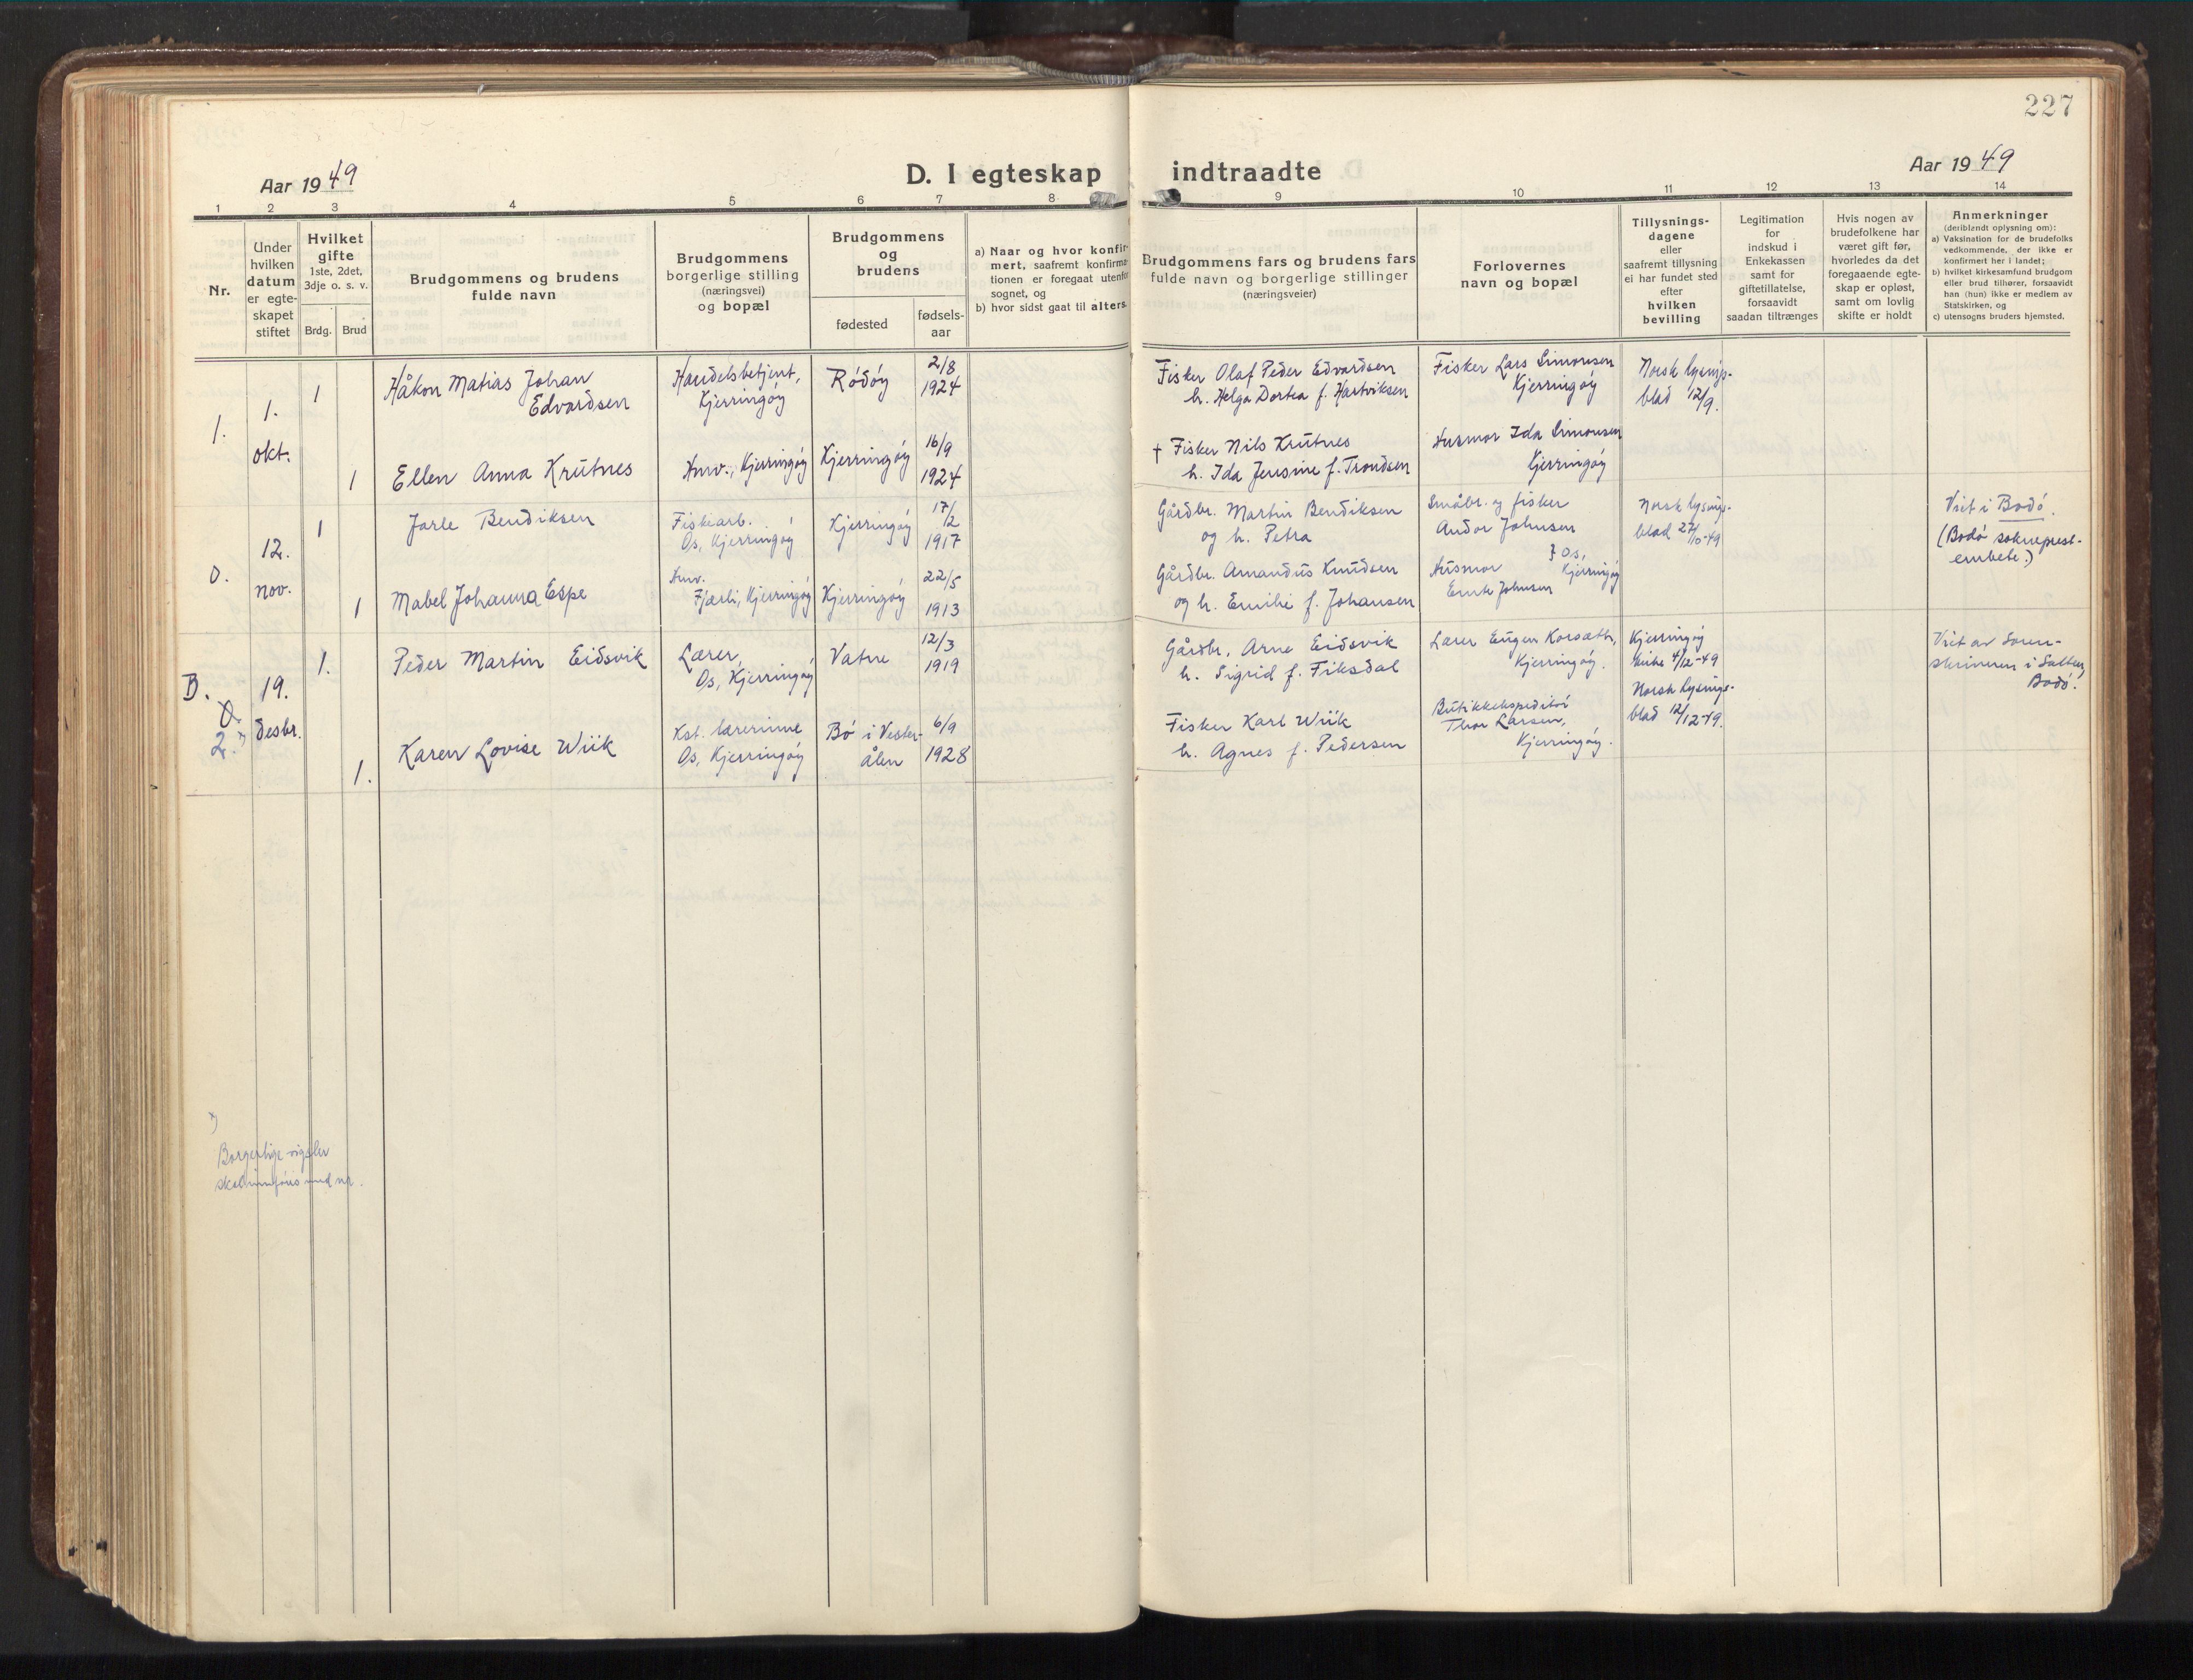 227
Aar 1949
D. I egteskap indtraadte
Aar 1949
1 2 3 4 5 6 7 8 9 10 11 12 13 14
Nr.
Under
hvilken
datum
er egte-
skapet
stiftet
Hvilket
gifte
1ste, 2det,
3dje o. s. v.
Brdg. Brud
Brudgommens og brudens
fulde navn
Brudgommens
borgerlige stilling
(næringsvei)
og bopæl
Brudgommens
og
brudens
fødested
fødsels-
aar
a) Naar og hvor konfir-
mert, saafremt konfirma-
tionen er foregaat utenfor
sognet, og
b) hvor sidst gaat til alters.
Brudgommens fars og brudens fars
fulde navn og borgerlige stillinger
(næringsveier)
Forlovernes
navn og bopæl
Tillysnings-
dagene
eller
saafremt tillysning
ei har fundet sted
efter
hvilken
bevilling
Legitimation
for
indskud i
Enkekassen
samt for
giftetillatelse,
forsaavidt
saadan tiltrænges
Hvis nogen av
brudefolkene har
været gift før,
hvorledes da det
foregaaende egte-
skap er opløst,
samt om lovlig
skifte er holdt
Anmerkninger
(deriblandt oplysning om):
a) Vaksination for de brudefolks
vedkommende, der ikke er
konfirmert her i landet;
b) hvilket kirkesamfund brudgom
eller brud tilhører, forsaavidt
han (hun) ikke er medlem av
Statskirken, og
c) utensogns bruders hjemsted.
1.
1.
okt.
1
Håkon Matias Johan
Edvardsen
Handelsbetjent,
Kjerringøy
Rødøy
2/8
1924
Fisker Olaf Peder Edvardsen
h. Helga Dortea f. Hartviksen
Fisker Lars Simonsen
Kjerringøy
Norsk lysings-
blad 12/9.
1
Ellen Anna Krutnes
Husv., Kjerringøy
Kjerringøy
16/9
1924
† Fisker Nils Krutnes
h. Ida Jensine f. Trondsen
Husmor Ida Simonsen
Kjerringøy
0.
12.
nov.
1
Jarle Bendiksen
Fiskearb.
Os, Kjerringøy
Kjerringøy
17/2
1917
Gårdbr. Martin Bendiksen
og h. Petra
Småbr. og fisker
Andor Johnsen
Norsk lysings-
blad 27/10-49
Viet i Bodø.
(Bodø sokneprest-
embete.)
1
Mabel Johanna Espe
Husv.
Fjærli, Kjerringøy
Kjerringøy
22/5
1913
Gårdbr. Amandus Knudsen
og h. Emilie f. Johansen
Husmor
Johnsen
} Os,
Kjerringøy
B.
0.
2. x)
19.
desbr.
1.
Peder Martin Eidsvik
Lærer,
Os, Kjerringøy
Vatne
12/3
1919
Gårdbr. Arne Eidsvik
h. Sigrid f. Fiksdal
Lærer Eugen Korsæth,
Kjerringøy.
Kjerringøy
kirke 4/12-49
Norsk lysings-
blad 12/12-49.
Viet av Soren-
skriveren i Salten,
Bodø.
1.
Karen Lovise Wiik
Kst. lærerinne
Os, Kjerringøy
Bø i Vester-
ålen
6/9
1928
Fisker Karl Wiik
h. Agnes f. Pedersen
Butikkekspeditør
Thor Larsen,
Kjerringøy.
x)
Borgerlige vigsler
skal innføres med nr.